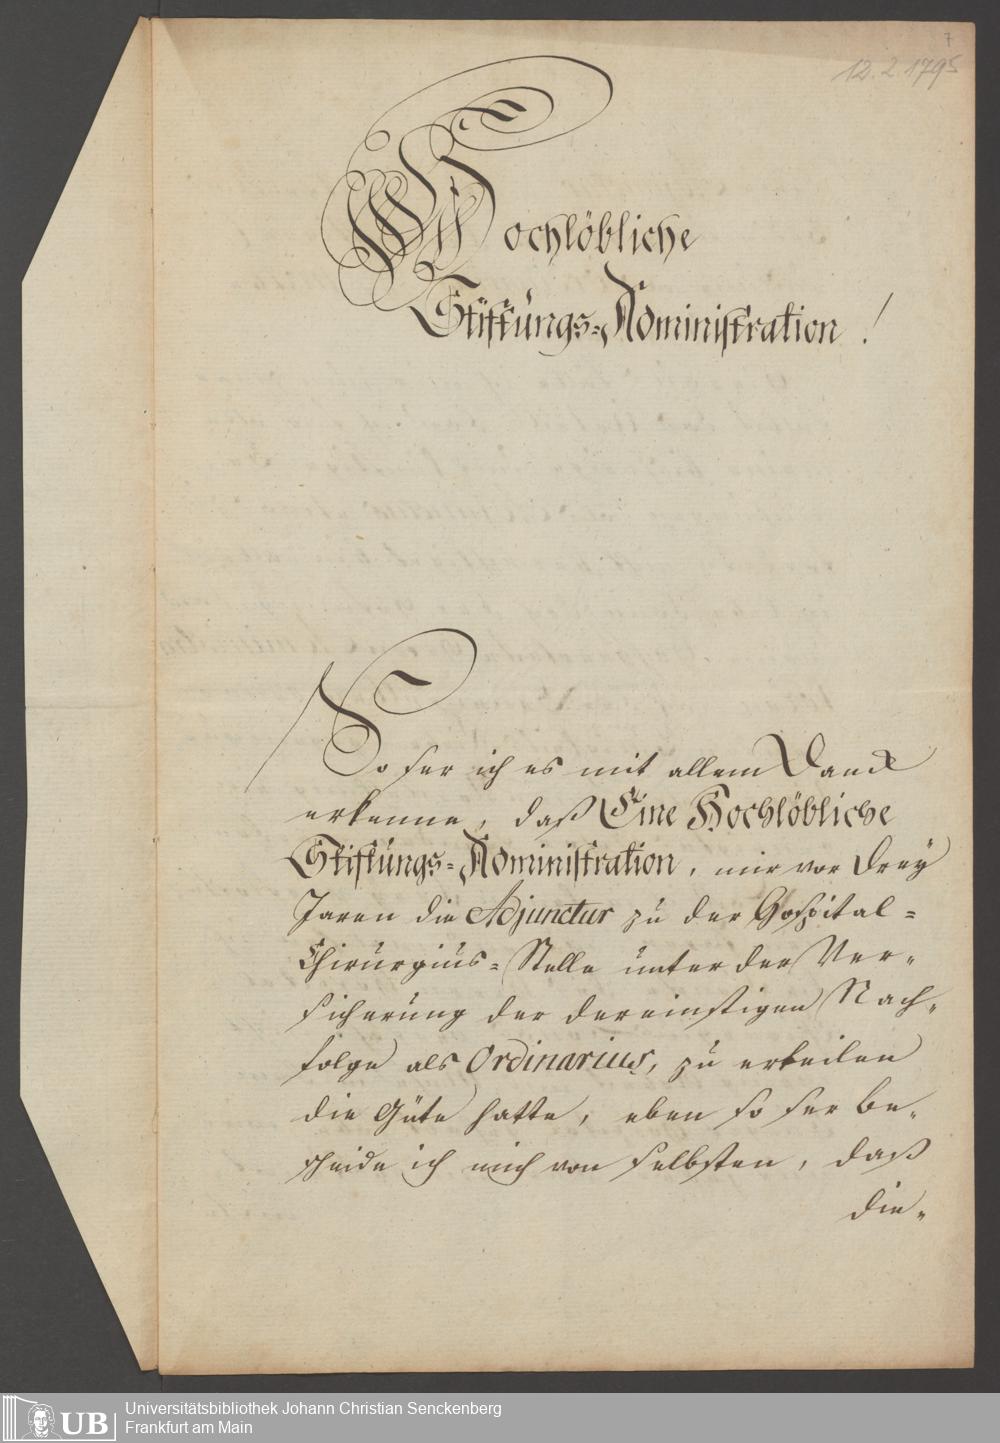 7
12. 2. 1795
Hochlöbliche
Stiftungs-Administration!
So ser ich es mit allem Danck
erkenne, daß Eine Hochlöbliche
Stiftungs-Administration, mir vor drey
Jaren die Adjunctur zu der Hospital-
Chirurgius-Stelle unter der Ver-
sicherung der dereinstigen Nach-
folge als Ordinarius, zu erteilen
die Güte hatte, eben so ser be-
scheide ich mich von selbsten, daß
die-
UB
Universitätsbibliothek Johann Christian Senckenberg
Frankfurt am Main